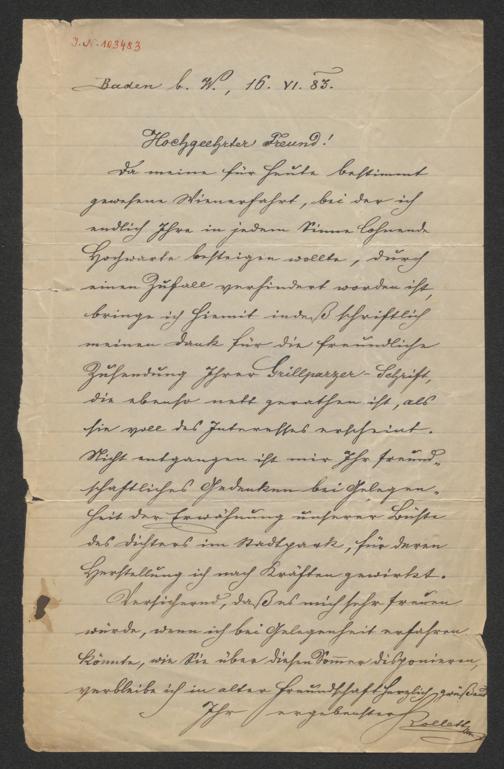 J. N. 103483
Baden b. W., 16. VI. 83.
Hochgeehrter Freund!
Da meine für heute bestimmt
gewesene Wienerfahrt, bei der ich
endlich Ihre in jedem Sinne lohnende
Hochwarte besteigen wollte, durch
einen Zufall verhindert worden ist,
bringe ich hiemit indeß schriftlich
meinen Dank für die freundliche
Zusendung Ihrer Grillparzer-Schrift,
die ebenso nett gerathen ist, als
sie voll des Interesses erscheint.
Nicht entgangen ist mir Ihr freund-
schaftliches Gedenken bei Gelegen-
heit der Erwähnung unserer Büste
des Dichters im Stadtpark, für deren
Herstellung ich nach Kräften gewirkt.
Versichernd, daß es mich sehr freuen
würde, wenn ich bei Gelegenheit erfahren
könnte, wie Sie über diesen Sommer disponieren,
verbleibe ich in alter Freundschaft herzlich grüßend
Ihr ergebenster
Rollett